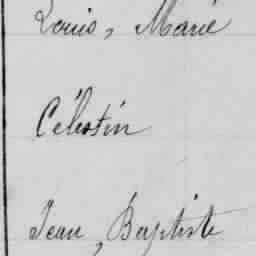 Louis, Marie
Célestin
Jean, Baptiste